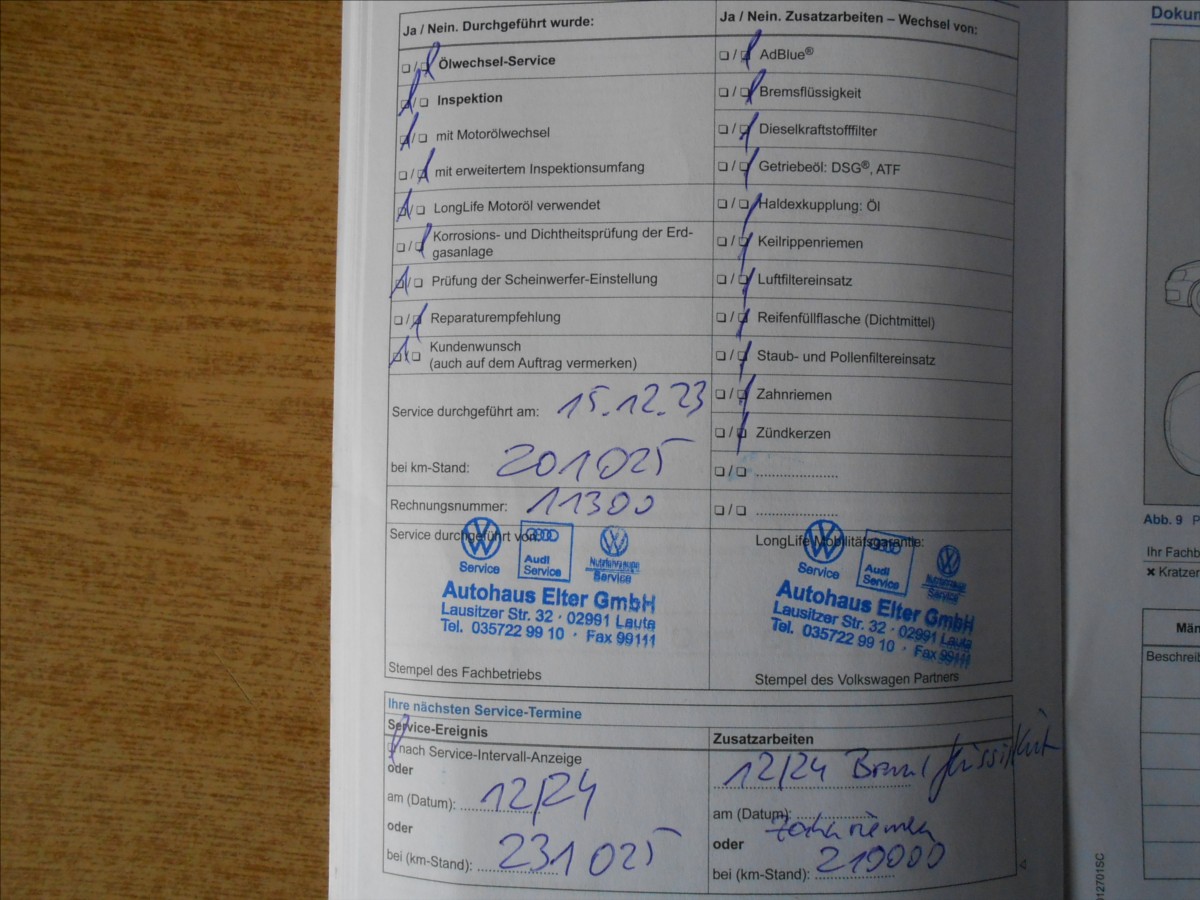 Ja / Nein. Durchgeführt wurde:
❏ / ❏ Ölwechsel-Service
❏ / ❏ Inspektion
❏ / ❏ mit Motorölwechsel
❏ / ❏ mit erweitertem Inspektionsumfang
❏ / ❏ LongLife Motoröl verwendet
❏ / ❏ Korrosions- und Dichtheitsprüfung der Erd-
gasanlage
❏ / ❏ Prüfung der Scheinwerfer-Einstellung
❏ / ❏ Reparaturempfehlung
❏ / ❏ Kundenwunsch
(auch auf dem Auftrag vermerken)
Service durchgeführt am: 15.12.23
bei km-Stand: 201025
Rechnungsnummer: 11300
Service durchgeführt von:
Service
Audi
Service
Nutzfahrzeuge
Service
Autohaus Elter GmbH
Lausitzer Str. 32 · 02991 Lauta
Tel. 035722 99 10 · Fax 99111
Stempel des Fachbetriebs
Ja / Nein. Zusatzarbeiten – Wechsel von:
❏ / ❏ AdBlue®
❏ / ❏ Bremsflüssigkeit
❏ / ❏ Dieselkraftstofffilter
❏ / ❏ Getriebeöl: DSG®, ATF
❏ / ❏ Haldexkupplung: Öl
❏ / ❏ Keilrippenriemen
❏ / ❏ Luftfiltereinsatz
❏ / ❏ Reifenfüllflasche (Dichtmittel)
❏ / ❏ Staub- und Pollenfiltereinsatz
❏ / ❏ Zahnriemen
❏ / ❏ Zündkerzen
❏ / ❏ .....................
❏ / ❏ .....................
LongLife Mobilitätsgarantie:
Service
Audi
Service
Nutzfahrzeuge
Service
Autohaus Elter GmbH
Lausitzer Str. 32 · 02991 Lauta
Tel. 035722 99 10 · Fax 99111
Stempel des Volkswagen Partners
Ihre nächsten Service-Termine
Service-Ereignis
❏ nach Service-Intervall-Anzeige
oder
am (Datum): 12/24
oder
bei (km-Stand): 231025
Zusatzarbeiten
12/24 Bremsflüssigkeit
am (Datum):
Zahnriemen
oder
bei (km-Stand): 210000
Dokun
Abb. 9 P
Ihr Fachb
× Kratzer
Män
Beschreib
12701SC